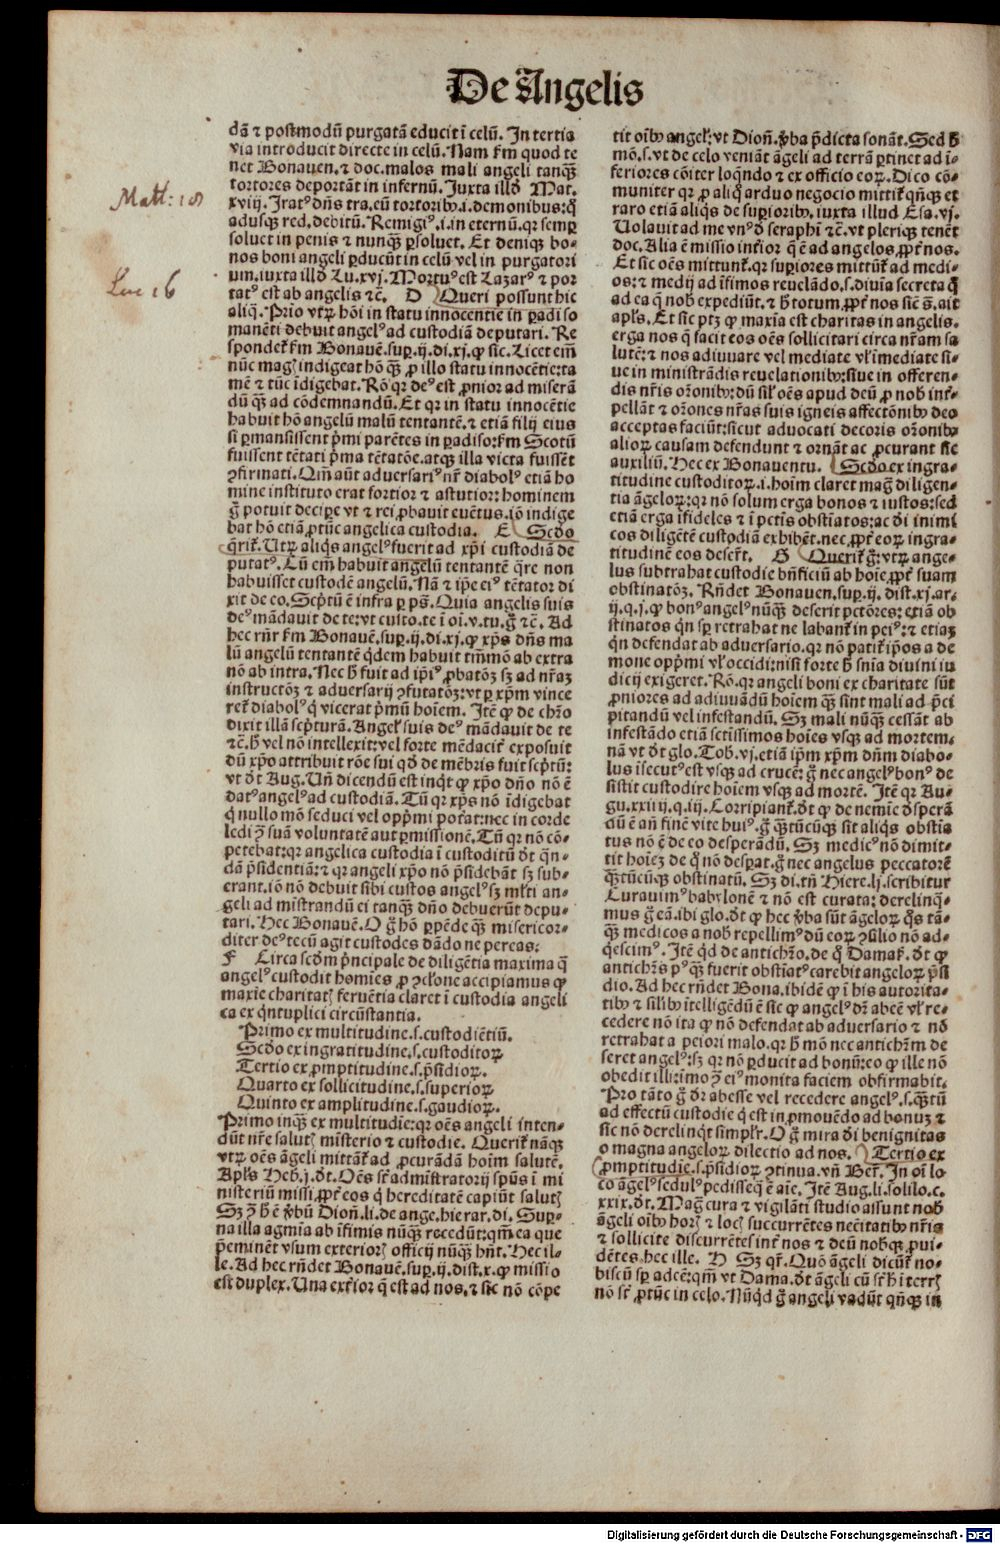 De Angelis
dã ⁊ postmodũ purgatã educit ĩ celũ. In tertia
via introducit directe in celũ. Nam ẜm quod te
net Bonauen. ⁊ doc. malos mali angeli tanqꝫ
tortores deportãt in infernũ. Iuxta illđ Mat.
xviij. Iratꝰ dñs tra. eũ tortoribꝰ .i. demonibus: q̈
adusqꝫ red. debitũ. Remigiꝰ .i. in eternũ. qꝛ semꝑ
soluet in penis ⁊ nunqꝫ ꝑsoluet. Et deniqꝫ bo-
nos boni angeli ꝑducũt in celũ vel in purgatori
um. iuxta illđ Lu. xvj. Mortuꝰ est Lazarꝰ ⁊ por
tatꝰ est ab angelis ⁊c̃. D Queri possunt hic
aliq̃. Prĩo vtꝝ hõi in statu innocentie in ꝑadiso
manẽti debuit angelꝰ ad custodiã deputari. Re
spondet᷑ ẜm Bonauẽ. suꝑ .ij. di. xj. ꝙ sic. Licet em̃
nũc magꝭ indigeat hõ qꝫ ꝓ illo statu innocẽtie: ta
mẽ ⁊ tũc ĩdigebat. Rõ. qꝛ deꝰ est ꝓnior ad miserã
dũ qꝫ ad cõdemnandũ. Et qꝛ in statu innocẽtie
habuit hõ angelũ malũ tentantẽ. ⁊ etiã filij eius
si ꝑmansissent p̃mi parẽtes in ꝑadiso: ẜm Scotũ
fuissent tẽtati p̃ma tẽtatõe. atqꝫ illa victa fuissẽt
ꝯfirmati. Qm̃ aũt aduersariꝰ nr̃ diabolꝰ etiã ho
mine instituto erat fortior ⁊ astutior: hominem
g̃ potuit deciꝑe vt ⁊ rei ꝓbauit euẽtus. iõ indige
bat hõ etiã ꝓtũc angelica custodia. E Scđo
q̃rit᷑. Utꝝ aliq̃s angelꝰ fuerit ad xp̃i custodiã de
putatꝰ. Cũ em̃ habuit angelũ tentantẽ q̃re non
habuisset custodẽ angelũ. Nã ⁊ ip̃e eiꝰ tẽtator di
xit de eo. Scp̃tũ ẽ infra ꝑ ps̃. Quia angelis suis
deꝰ mãdauit de te: vt custo. te ĩ oi. v. tu. g̃ ⁊c̃. Ad
hec rñr ẜm Bonauẽ. suꝑ .ij. di. xj. ꝙ xp̃s dñs ma
lũ angelũ tentantẽ q̃dem habuit tm̃mõ ab extra
nõ ab intra. Nec h̃ fuit ad ip̃iꝰ ꝓbatõꝫ sꝫ ad nr̃aꝫ
instructõꝫ ⁊ aduersarij ꝯfutatõꝫ: vt ꝑ xp̃m vince
ret᷑ diabolꝰ q̇ vicerat p̃mũ hoĩem. Itẽ ꝙ de chr̃o
dixit illã scp̃turã. Angel᷑ suis deꝰ mãdauit de te
⁊c̃. h̃ vel nõ intellexit: vel forte mẽdacit᷑ exposuit
dũ xp̃o attribuit rõe sui qđ de mẽbris fuit scp̃tũ:
vt dt̃ Aug. Uñ dicendũ est inqt̃ ꝙ xp̃o dño nõ ẽ
datꝰ angelꝰ ad custodiã. Tũ qꝛ xp̃s nõ ĩdigebat
q̇ nullo mõ seduci vel opp̃mi poťat: nec in corde
ledi ꝯ̃ suã voluntatẽ aut ꝑmissionẽ. Tũ qꝛ nõ cõ-
petebat: qꝛ angelica custodia ĩ custoditũ dt̃ q̃n-
dã p̃sidentiã: ⁊ qꝛ angeli xp̃o nõ p̃sidebãt sꝫ sub-
erant. iõ nõ debuit sibi custos angelꝰ sꝫ ml̃ti an-
geli ad mĩstrandũ ei tanqꝫ dño debuerũt depu-
tari. Hec Bonauẽ. O g̃ hõ ꝑpẽde qꝫ misericor-
diter deꝰ tecũ agit custodes dãdo ne pereas:
F Circa scđm p̃ncipale de diligẽtia maxima q̃
angelꝰ custodit homĩes ꝓ ꝯcl̃one accipiamus ꝙ
maxĩe charitatꝭ feruẽtia claret ĩ custodia angeli
ca ex q̃ntuplici circũstantia.
Primo ex multitudine .s. custodiẽtiũ.
Scđo ex ingratitudine .s. custoditoꝝ
Tertio ex ꝓmptitudine .s. p̃sidioꝝ.
Quarto ex sollicitudine .s. superioꝝ
Quinto ex amplitudine .s. gaudioꝝ.
Primo inqꝫ ex multitudĩe: qꝛ oẽs angeli inten-
dũt nr̃e salutꝭ mĩsterio ⁊ custodie. Querit᷑ nãqꝫ
vtꝝ oẽs ãgeli mittãt᷑ ad ꝓcurãdã hoĩm salutẽ.
Apl̃s Heb. j. dt̃. Oẽs st̃ admĩstratorij spũs ĩ mi
nisteriũ missi. ꝓpt̃ eos q̇ hereditatẽ capiũt salutꝭ
Sꝫ ꝯ̃ h̃ ẽ v̾bũ Dioñ. li. de ange. hierar. di. Suꝑ-
na illa agmĩa ab ĩfimis nũqꝫ recedũt: qm̃ ea que
p̃eminẽt vsum exteriorꝭ officij nũqꝫ hñt. Hec il-
le. Ad hec rñdet Bonauẽ. suꝑ .ij. dist. x. ꝙ missio
est duplex. Una ext̾ior q̃ est ad nos. ⁊ sic nõ cõpe
tit oĩbꝰ angel᷑: vt Dioñ. v̾ba p̃dicta sonãt. Sed h̃
mõ .s. vt de celo veniãt ãgeli ad terrã ꝑtinet ad ĩ-
feriores cõiter loq̃ndo ⁊ ex officio eoꝝ. Dico cõ-
muniter qꝛ ꝓ aliq̃ arduo negocio mittit᷑ qñqꝫ et
raro etiã aliq̃s de suꝑioribꝰ, iuxta illud Esa. vj.
Uolauit ad me vnꝰ đ seraphĩ ⁊c̃. vt pleriqꝫ tenẽt
doc. Alia ẽ missio int̾ior q̃ ẽ ad angelos, ꝓpt̃ nos.
Et sic oẽs mittunt᷑. qꝛ suꝑiores mittũt᷑ ad medi-
os: ⁊ medij ad ĩfimos reuelãdo .s. diuĩa secreta q̃
ad ea q̃ nob̃ expediũt. ⁊ h̃ totum, ꝓpt̃ nos sic g̃. ait
apl̃s. Et sic ptꝫ ꝙ maxĩa est charitas in angelis.
erga nos q̃ facit eos oẽs sollicitari circa nr̃am sa
lutẽ: ⁊ nos adiuuare vel mediate vl̾ ĩmediate si-
ue in ministrãdis reuelationibꝰ: siue in offeren-
dis nr̃is or̃onibꝰ: dũ sil᷑ oẽs apud deũ ꝓ nob̃ int̾-
pellãt ⁊ or̃ones nr̃as suis igneis affectõnibꝰ deo
acceptas faciũt: sicut aduocati decoris or̃onibꝰ
alioꝝ causam defendunt ⁊ ornãt ac ꝓcurant sic
auxiliũ. Hec ex Bonauentu. Scđo ex ingra-
titudine custoditoꝝ .i. hoĩm claret mag̃ diligen-
tia ãgeloꝝ: qꝛ nõ solum erga bonos ⁊ iustos: sed
etiã erga ĩfideles ⁊ ĩ pctĩs obstĩatos: ac đi inimi
cos diligẽtẽ custodiã exhibẽt. nec, ꝓpt̃ eoꝝ ingra-
titudinẽ eos deser̃t. G Querit᷑ g̃: vtꝝ ange-
lus subtrahat custodie bñficiũ ab hoĩe, ꝓpt̃ suam
obstinatõꝫ. Rñdet Bonauen. suꝑ .ij. dist. xj. ar-
ij. q. j. ꝙ bonꝰ angelꝰ nũqꝫ deserit pctõres: etiã ob
stinatos q̃n sꝑ retrahat ne labant᷑ in peiꝰ: ⁊ etiaꝫ
q̃n defendat ab aduersario. qꝛ nõ patit᷑ ip̃os a de
mone opp̃mi vl᷑ occidi: nisi forte h̃ snĩa diuini iu
dicij exigeret. Rõ. qꝛ angeli boni ex charitate sũt
ꝓniores ad adiuuãdũ hoĩem qꝫ sint mali ad p̃ci
pitandũ vel infestandũ. Sꝫ mali nũqꝫ cessãt ab
infestãdo etiã sctĩssimos hoĩes vsqꝫ ad mortem.
nã vt dt̃ glo. Tob. vj. etiã ip̃m xp̃m dñm diabo-
lus ĩsecutꝰ est vsqꝫ ad crucẽ: g̃ nec angelꝰ bonꝰ de
sistit custodire hoĩem vsqꝫ ad mortẽ. Itẽ qꝛ Au-
gu. xxiij. q. iij. Corripiant᷑. dt̃ ꝙ de nemĩe đsperã
dũ ẽ añ finẽ vite huiꝰ. g̃ qꝫtũcũqꝫ sit aliq̃s obstĩa
tus nõ ẽ de eo desperãdũ. Sꝫ medicꝰ nõ dimit-
tit hoĩeꝫ de q̃ nõ desꝑat. g̃ nec angelus peccatorẽ
qꝫtũcũqꝫ obstinatũ. Sꝫ di. tñ Hiere. lj. scribitur
Curauimꝰ babylonẽ ⁊ nõ est curata: derelinq̃-
mus g̃ eã. ibi glo. dt̃ ꝙ hec v̾ba sũt ãgeloꝝ q̃s tã-
qꝫ medicos a nob̃ repellimꝰ dũ eoꝝ ꝯsilio nõ ad-
q̃escimꝰ. Itẽ q̃đ de antichr̃o. de q̃ Damas̃. dt̃ ꝙ
antichr̃s pꝰqꝫ fuerit obstĩatꝰ carebit angeloꝝ p̃si
dio. Ad hec rñdet Bona. ibidẽ ꝙ ĩ his autorita-
tibꝰ ⁊ sil̃ibꝰ ĩtelligẽdũ ẽ sic ꝙ angelꝰ dr̃ abeẽ vl᷑ re-
cedere nõ ita ꝙ nõ defendat ab aduersario ⁊ nõ
retrahat a peiori malo. qꝛ h̃ mõ nec antichr̃m de
seret angelꝰ: sꝫ qꝛ nõ ꝑducit ad bonũ: eo ꝙ ille nõ
obedit illi: imo ꝯ̃ eiꝰ monita faciem obfirmabit.
Pro tãto g̃ dr̃ abesse vel recedere angelꝰ .s. qꝫtũ
ad effectũ custodie q̃ est in, ꝓmouẽdo ad bonuꝫ ⁊
sic nõ derelinq̃t simpl᷑r. O g̃ mira đi benignitas
o magna angeloꝝ dilectio ad nos. Tertio ex
ꝓmptitudĩe .s. p̃sidioꝝ ꝯtinua. vñ Ber̃. In oĩ lo
co ãgelꝰ sedulꝰ pedisseq̃ ẽ aĩe. Itẽ Aug. li. solilo. c.
xxix. dt̃. Mag̃ cura ⁊ vigilãti studio assunt nob̃
ãgeli oĩbꝰ horꝭ ⁊ locꝭ succurrẽtes necẽitatibꝰ nr̃is
⁊ sollicite discurrẽtes int̾ nos ⁊ deũ nob̃qꝫ ꝓui-
dẽtes. hec ille. H Sꝫ qr̃. Quõ ãgeli dicũt᷑ no-
biscũ sꝑ adeẽ: qm̃ vt Dama. dt̃ ãgeli cũ st̃ hĩ terrꝭ
nõ st̃ ꝓtũc in celo. Nũq̃d g̃ angeli vadũt qñqꝫ in
Matt: 18
Luc 16
Digitalisierung gefördert durch die Deutsche Forschungsgemeinschaft - DFG